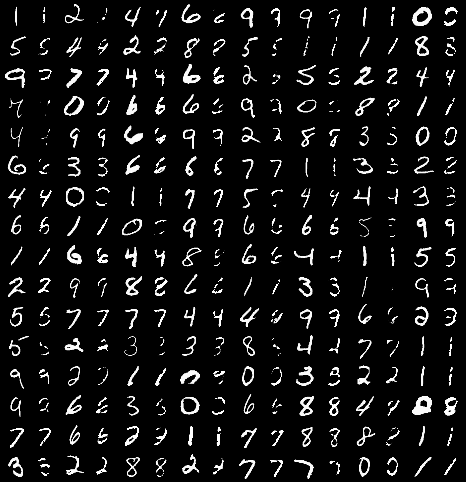 1 1 2 4 4 6 6 9 9 9 9 1 1 0 0
5 5 4 4 2 2 8 8 5 5 1 1 1 1 8 8
9 9 7 7 4 4 6 6 2 5 5 2 2 4 4
0 0 6 6 6 6 9 9 0 8 8 1 1
4 4 9 9 6 6 9 9 2 2 8 8 3 3 0 0
6 6 3 3 6 6 8 8 7 7 1 1 3 3 2 2
4 4 0 0 1 1 7 7 5 4 4 4 4 3 3
6 6 1 1 0 9 9 6 6 6 6 5 9 9
1 1 6 6 4 4 8 8 6 6 4 4 1 1 5 5
2 2 9 9 8 8 6 6 1 1 3 3 1 9 9
5 5 7 7 7 7 4 4 4 4 9 9 6 6 2 2
5 5 2 2 3 3 3 3 8 4 4 7 7 1 1
9 9 2 2 1 1 0 0 0 3 3 2 2 1 1
9 9 6 6 3 3 0 0 6 6 8 8 4 4 8 8
7 7 6 6 2 2 1 1 7 7 8 8 8 8 1 1
3 3 2 2 8 8 2 2 7 7 7 7 0 0 1 1